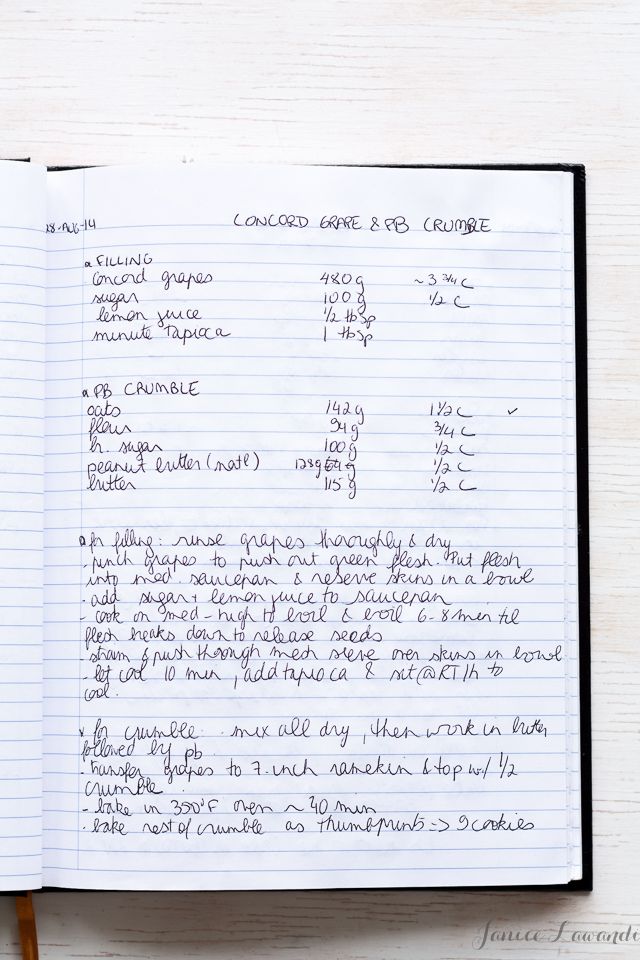 28-AUG-14 CONCORD GRAPE & PB CRUMBLE
FILLING
Concord grapes 480g ~3 3/4 C
sugar 100g 1/2 C
lemon juice 1/2 tbsp
minute Tapioca 1 tbsp
PB CRUMBLE
oats 142g 1 1/2 C ✓
flour 94g 3/4 C
b. sugar 100g 1/2 C
peanut butter (natl) 128g 64g 1/2 C
butter 115g 1/2 C
for filling: rinse grapes thoroughly & dry
- pinch grapes to push out green flesh. Put flesh
into med. saucepan & reserve skins in a bowl
- add sugar + lemon juice to saucepan
- cook on med-high to boil & boil 6-8 min til
flesh breaks down to release seeds
- strain & push through mesh sieve over skins in bowl
- let cool 10 min, add tapioca & sit @ RT 1h to
cool.
for crumble: mix all dry, then work in butter
followed by pb.
- transfer grapes to 7-inch ramekin & top w/ 1/2
crumble
- bake in 350°F oven ~ 40 min
- bake rest of crumble as thumbprints => 9 cookies
Janice Lawandi